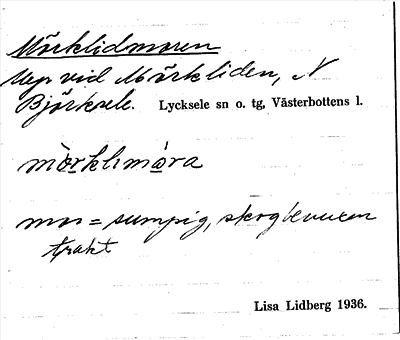 Mörklidmoren
Uep. vid Mörkliden, N
Björksele. Lycksele sn o. tg, Västerbottens l.
mö̀rklımà̀ra
mor = sumpig, skogbevuxen
trakt
Lisa Lidberg 1936.